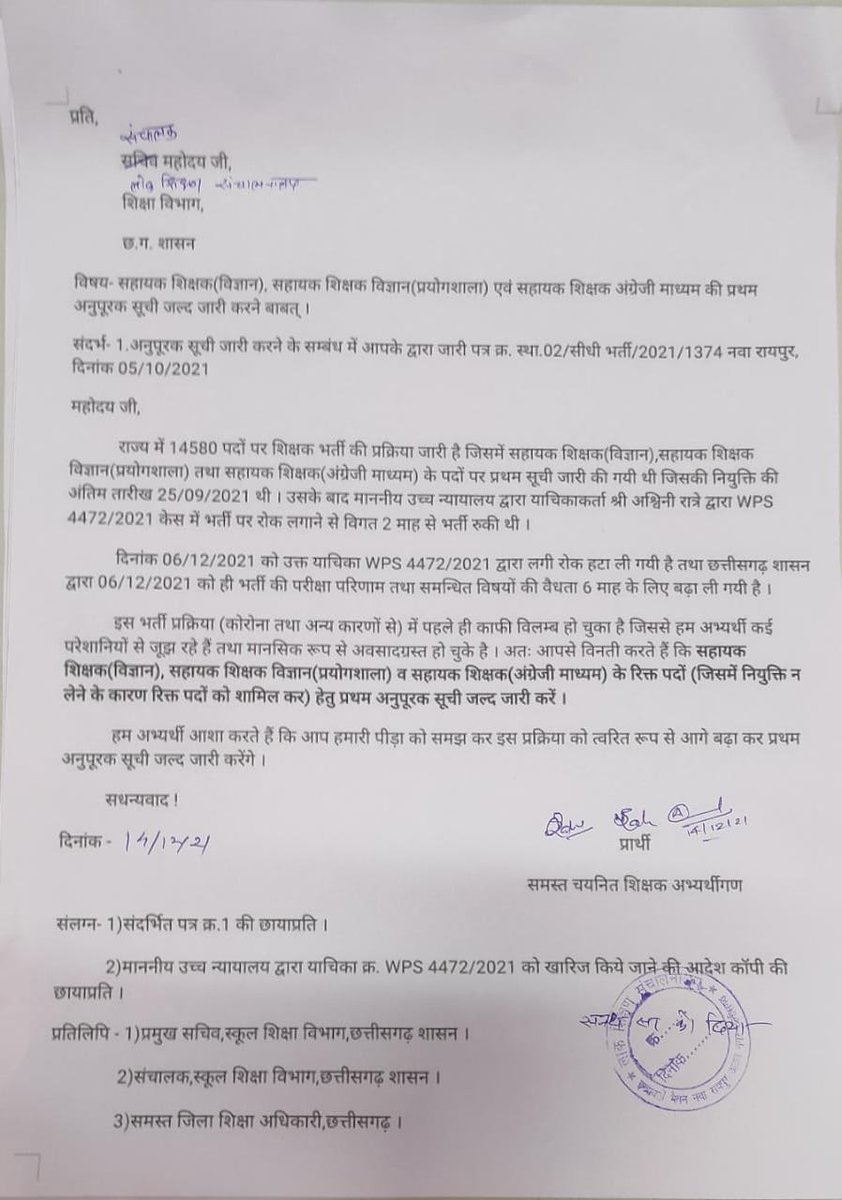 प्रति,
संचालक
सचिव महोदय जी,
लोक शिक्षण संचालनालय
शिक्षा विभाग,
छ.ग. शासन
विषय- सहायक शिक्षक(विज्ञान), सहायक शिक्षक विज्ञान(प्रयोगशाला) एवं सहायक शिक्षक अंग्रेजी माध्यम की प्रथम
अनुपूरक सूची जल्द जारी करने बाबत् ।
संदर्भ- 1.अनुपूरक सूची जारी करने के सम्बंध में आपके द्वारा जारी पत्र क्र. स्था.02/सीधी भर्ती/2021/1374 नवा रायपुर,
दिनांक 05/10/2021
महोदय जी,
राज्य में 14580 पदों पर शिक्षक भर्ती की प्रक्रिया जारी है जिसमें सहायक शिक्षक(विज्ञान),सहायक शिक्षक
विज्ञान(प्रयोगशाला) तथा सहायक शिक्षक(अंग्रेजी माध्यम) के पदों पर प्रथम सूची जारी की गयी थी जिसकी नियुक्ति की
अंतिम तारीख 25/09/2021 थी । उसके बाद माननीय उच्च न्यायालय द्वारा याचिकाकर्ता श्री अश्विनी रात्रे द्वारा WPS
4472/2021 केस में भर्ती पर रोक लगाने से विगत 2 माह से भर्ती रुकी थी ।
दिनांक 06/12/2021 को उक्त याचिका WPS 4472/2021 द्वारा लगी रोक हटा ली गयी है तथा छत्तीसगढ़ शासन
द्वारा 06/12/2021 को ही भर्ती की परीक्षा परिणाम तथा समन्धित विषयों की वैधता 6 माह के लिए बढ़ा ली गयी है ।
इस भर्ती प्रक्रिया (कोरोना तथा अन्य कारणों से) में पहले ही काफी विलम्ब हो चुका है जिससे हम अभ्यर्थी कई
परेशानियों से जूझ रहे हैं तथा मानसिक रूप से अवसादग्रस्त हो चुके है । अतः आपसे विनती करते हैं कि सहायक
शिक्षक(विज्ञान), सहायक शिक्षक विज्ञान(प्रयोगशाला) व सहायक शिक्षक(अंग्रेजी माध्यम) के रिक्त पदों (जिसमें नियुक्ति न
लेने के कारण रिक्त पदों को शामिल कर) हेतु प्रथम अनुपूरक सूची जल्द जारी करें ।
हम अभ्यर्थी आशा करते हैं कि आप हमारी पीड़ा को समझ कर इस प्रक्रिया को त्वरित रूप से आगे बढ़ा कर प्रथम
अनुपूरक सूची जल्द जारी करेंगे ।
सधन्यवाद !
दिनांक - 14/12/21
14/12/21
प्रार्थी
समस्त चयनित शिक्षक अभ्यर्थीगण
संलग्न- 1)संदर्भित पत्र क्र.1 की छायाप्रति ।
2)माननीय उच्च न्यायालय द्वारा याचिका क्र. WPS 4472/2021 को खारिज किये जाने की आदेश कॉपी की
छायाप्रति ।
प्रतिलिपि - 1)प्रमुख सचिव,स्कूल शिक्षा विभाग,छत्तीसगढ़ शासन ।
2)संचालक,स्कूल शिक्षा विभाग,छत्तीसगढ़ शासन ।
3)समस्त जिला शिक्षा अधिकारी,छत्तीसगढ़ ।
लोक शिक्षण संचालनालय
क्र.
दिनांक......
नवा रायपुर